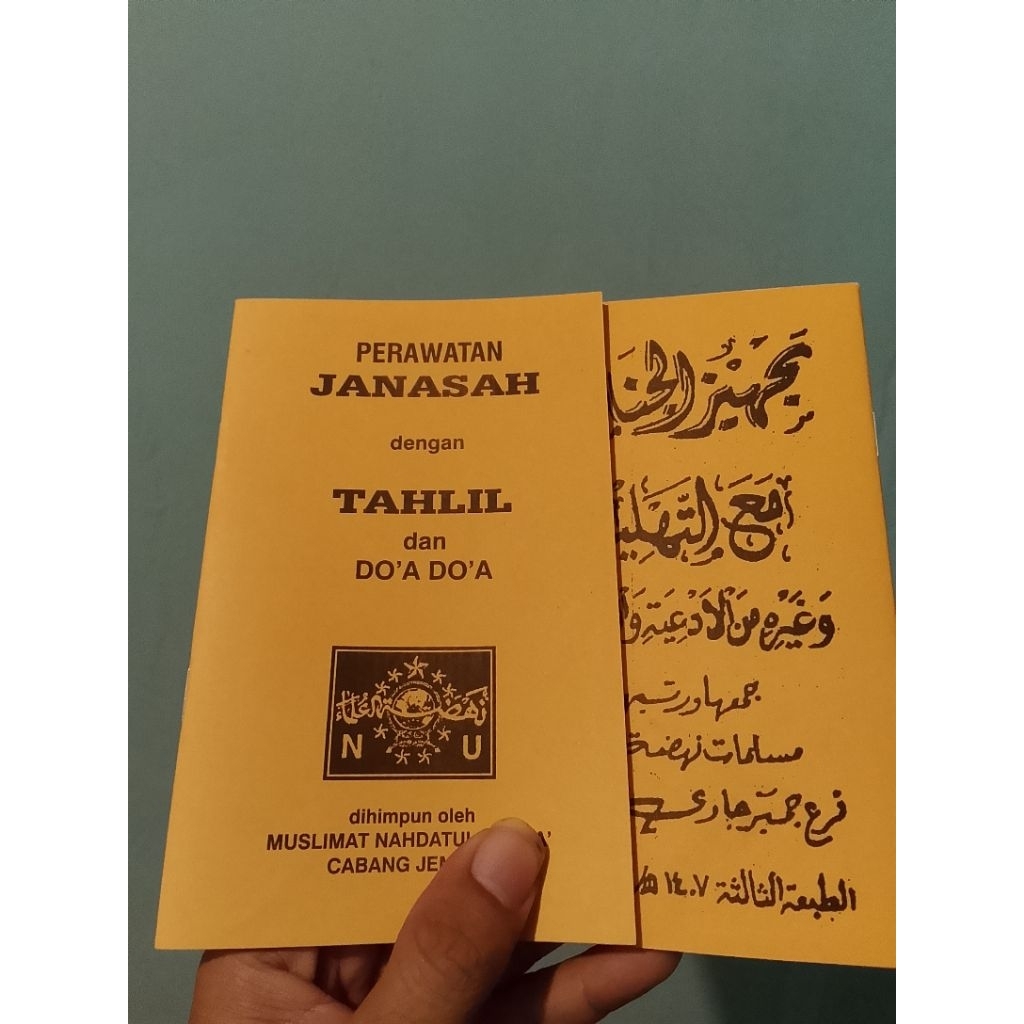 PERAWATAN
JANASAH
dengan
TAHLIL
dan
DO'A DO'A
N U
dihimpun oleh
MUSLIMAT NAHDATUL
CABANG
تَجْهِيْزُ
مَعَ التَّهْلِيْ
وَغَيْرِهِ مِنَ الْأَدْعِيَةِ
مسلمات نهضة
فرع جمبر جاوى
الطبعة الثالثة ١٤٠٧